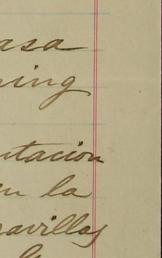 asa
ning
tación
en la
avillas